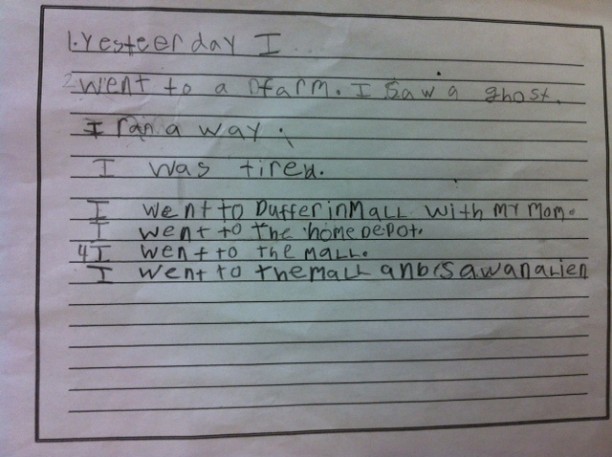 1. Yesteerday I ...
2 went to a farm. I saw a ghost.
I ran a way.
I was tired.
I went to DufferinMall with my mom.
I went to the home Depot.
4 I went to the mall.
I went to themall anb I sawanalien